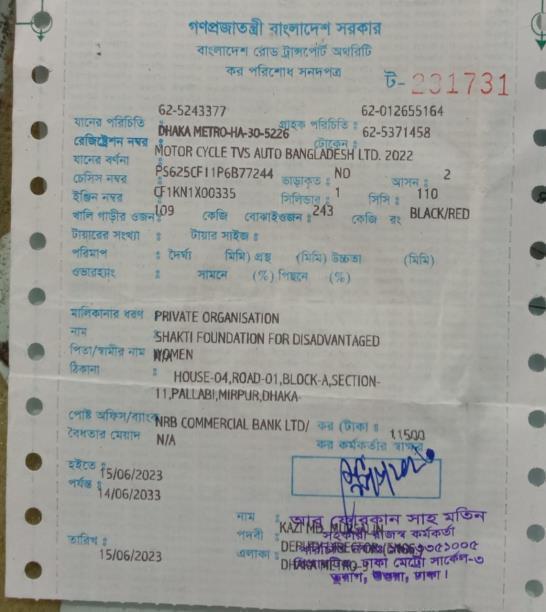 গণপ্রজাতন্ত্রী বাংলাদেশ সরকার
বাংলাদেশ রোড ট্রান্সপোর্ট অথরিটি
কর পরিশোধ সনদপত্র
ট- 231731
62-5243377 62-012655164
যানের পরিচিতি : গ্রাহক পরিচিতি :
রেজিষ্ট্রেশন নম্বর DHAKA METRO-HA-30-5226 টোকেন : 62-5371458
যানের বর্ণনা MOTOR CYCLE TVS AUTO BANGLADESH LTD. 2022
চেসিস নম্বর PS625CF11P6B77244 ভাড়াকৃত : NO আসন : 2
ইঞ্জিন নম্বর CF1KN1X00335 সিলিন্ডার : 1 সিসি : 110
খালি গাড়ীর ওজন : 109 কেজি বোঝাইওজন : 243 কেজি রং BLACK/RED
টায়ারের সংখ্যা : টায়ার সাইজ :
পরিমাপ : দৈর্ঘ্য (মিমি) প্রস্থ (মিমি) উচ্চতা (মিমি)
ওভারহ্যাং : সামনে (%) পিছনে (%)
মালিকানার ধরণ PRIVATE ORGANISATION
নাম : SHAKTI FOUNDATION FOR DISADVANTAGED
পিতা/স্বামীর নাম WOMEN
ঠিকানা : HOUSE-04,ROAD-01,BLOCK-A,SECTION-
11,PALLABI,MIRPUR,DHAKA-
পোষ্ট অফিস/ব্যাংক NRB COMMERCIAL BANK LTD/ কর (টাকা) : 11500
বৈধতার মেয়াদ N/A কর কর্মকর্তার স্বাক্ষর
হইতে : 15/06/2023
পর্যন্ত : 14/06/2033
নাম :
পদবী :
তারিখ : 15/06/2023 এলাকা : DHAKA METRO-3
সহকারী রাজস্ব কর্মকর্তা
DEPUTY DIRECTOR
ঢাকা মেট্রো সার্কেল-৩
ঢাকা।